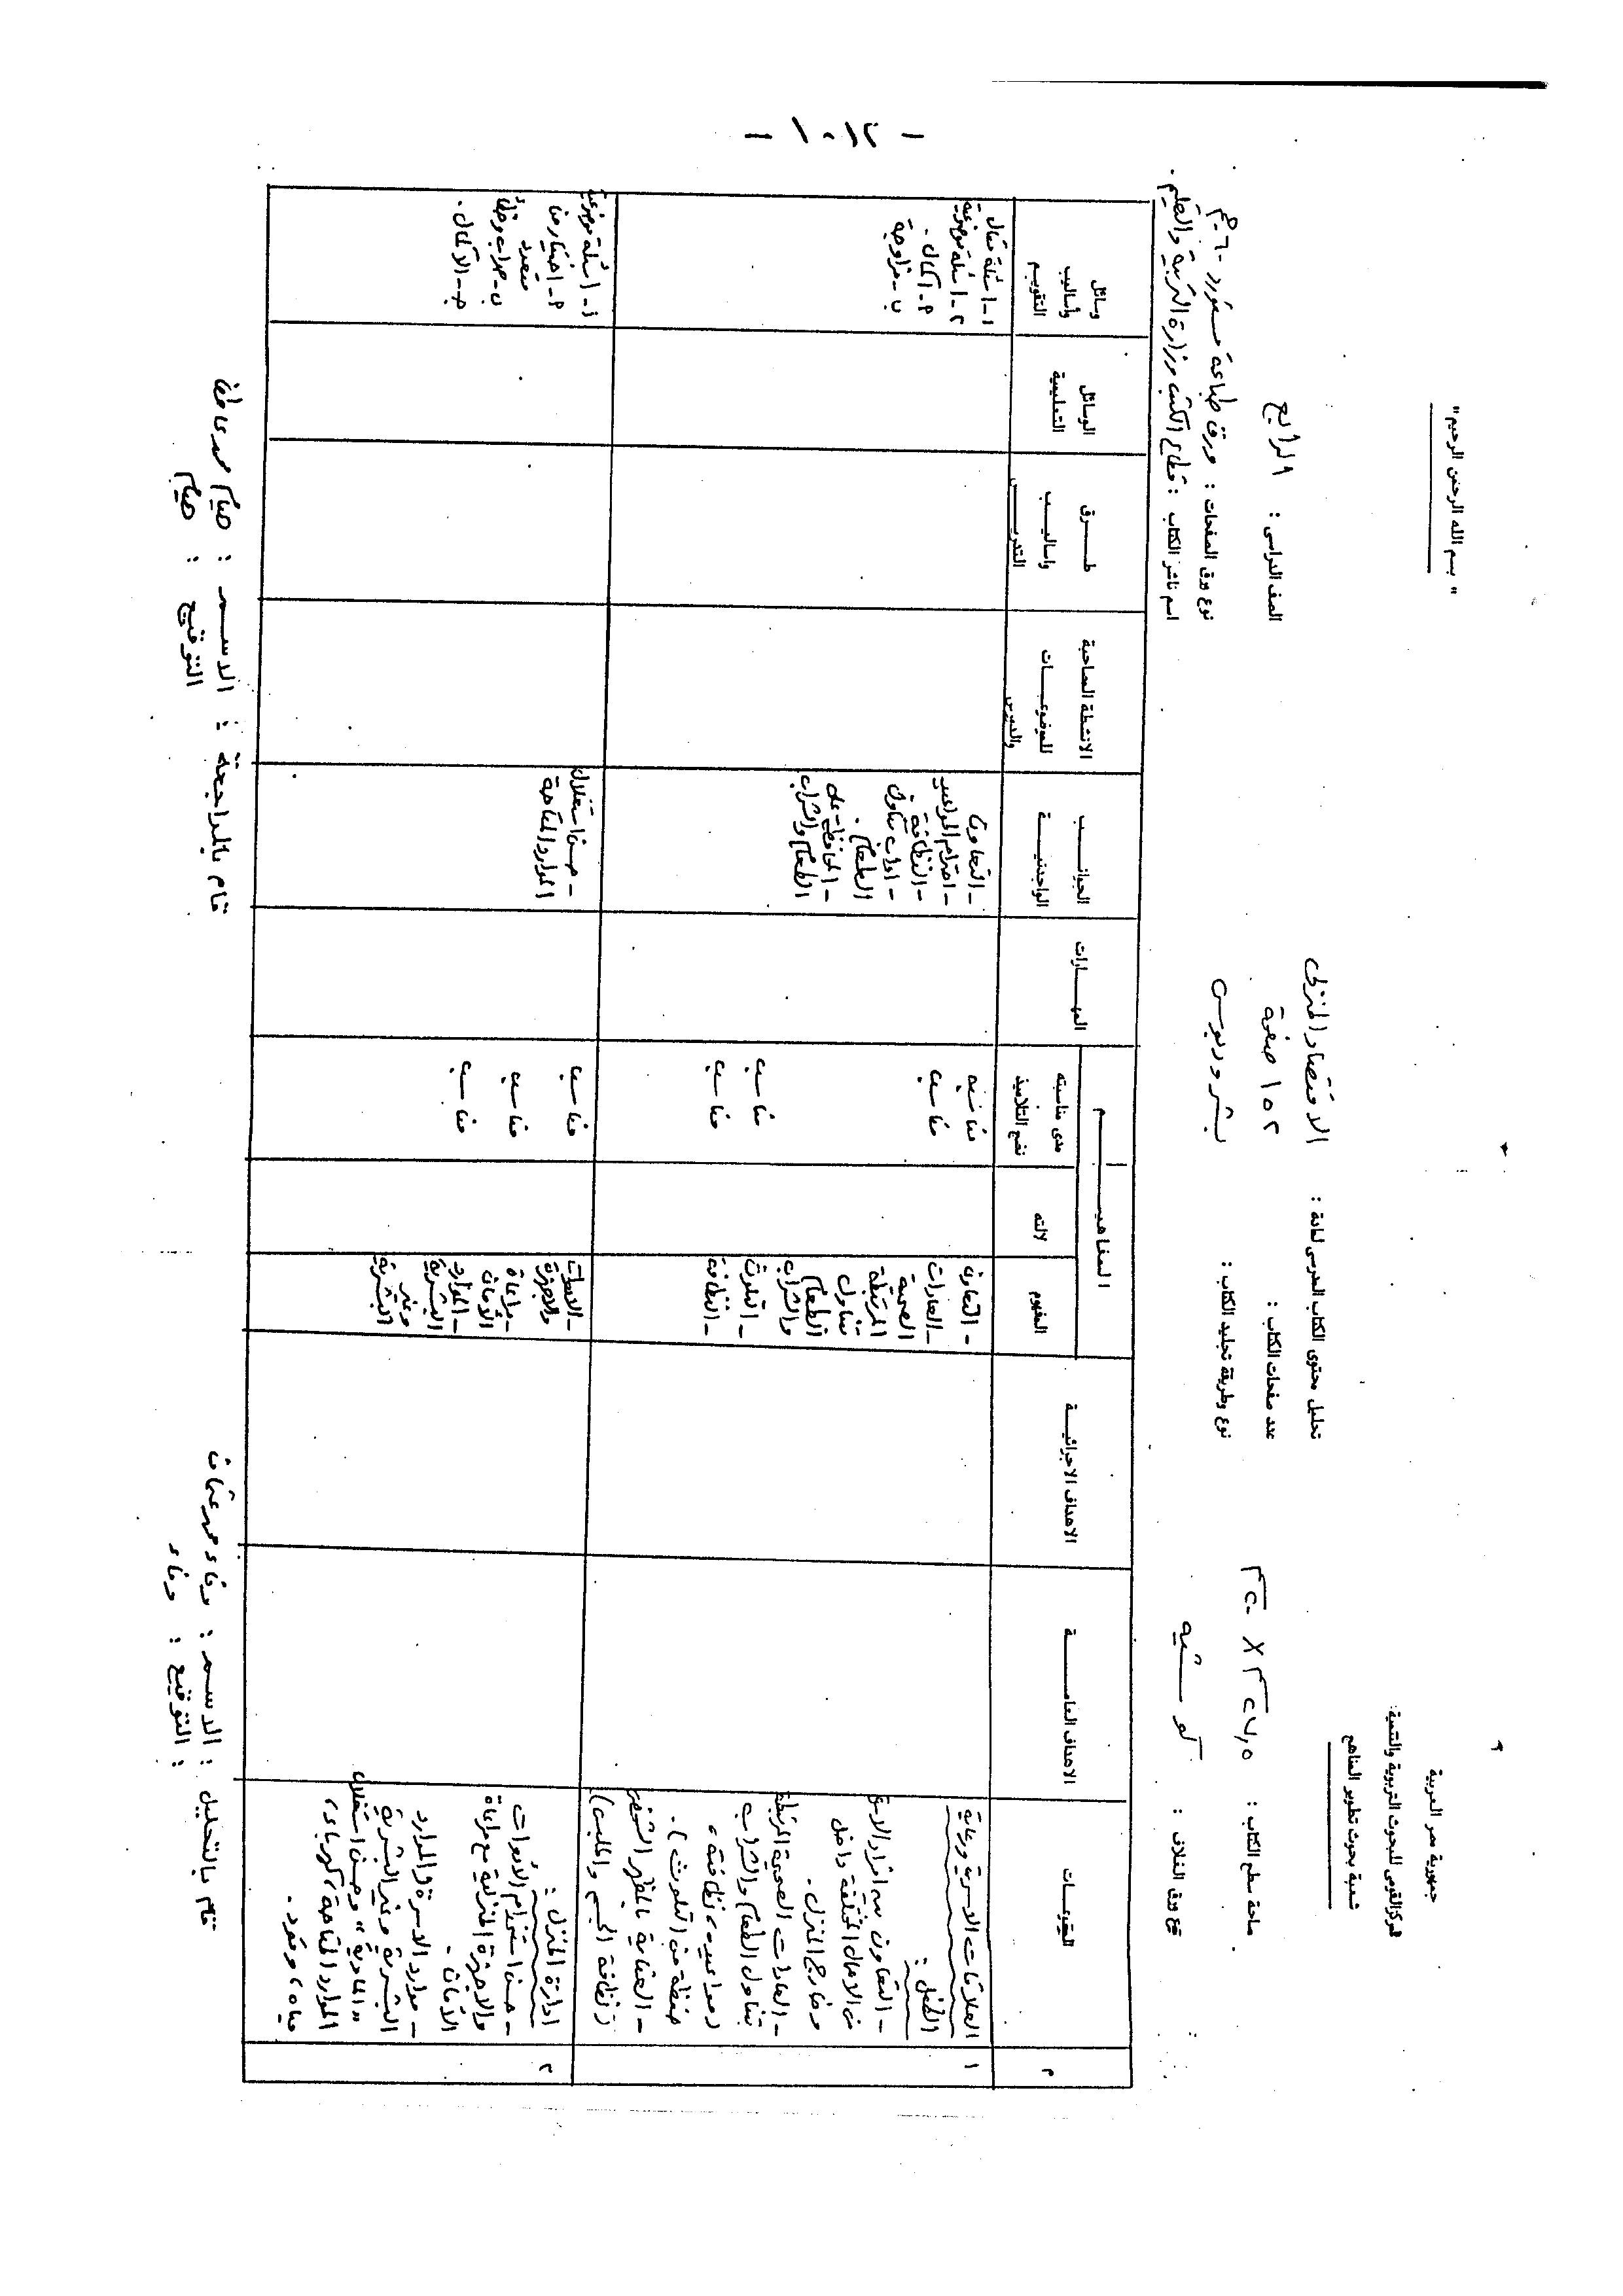 - ١٠١٢ -
جمهورية مصر العربية
المركز القومى للبحوث التربوية والتنمية
شعبة بحوث تطوير المناهج
" بسم الله الرحمن الرحيم "
تحليل محتوى الكتاب المدرسى لمادة : الاقتصاد المنزلى
الصف الدراسى : الرابع
مساحة سطح الكتاب :
عدد صفحات الكتاب : ١٥٢ صفحة
نوع ورق الصفحات : ورق طباعة مستورد ٦٠ جم
نوع ورق الغلاف : كوشيه
نوع وطريقة تجليد الكتاب : بشر ودبوس
اسم ناشر الكتاب : قطاع الكتب وزارة التربية والتعليم .
م
الموضوعات
الاهداف العامة
الاهداف الاجرائية
المفاهيم
المفهوم
دلالته
مدى مناسبته
نضج التلاميذ
المهارات
الجوانب
الوجدانية
الانشطة المصاحبة
للموضوعات
والدروس
طرق
واساليب
التدريس
الوسائل
التعليمية
وسائل
وأساليب
التقويم
١
العلاقات الاسرية ورعاية
الطفل :
- التعاون بين افراد الاسرة
فى الاعمال المختلفة داخل
وخارج المنزل .
- العادات الصحية المرتبطة
بتناول الطعام والشراب
( مواعيد ، نظافة ،
حفظه من التلوث ) .
- العناية بالمظهر الشخصى
( نظافة الجسم والملبس )
- التعاون
- العادات
الصحية
المرتبطة
بتناول
الطعام
والشراب
- التلوث
- النظافة
مناسب
مناسب
مناسب
مناسب
- التعاون
- احترام المواعيد
- النظافة
- اداب تناول
الطعام .
- المحافظة على
الطعام والشراب
١- اسئلة مقال
٢- اسئلة موضوعية
أ- اكمال .
ب- مزاوجة
٢
ادارة المنزل :
- حسن استخدام الأدوات
والاجهزة المنزلية مع مراعاة
الأمان .
- موارد الاسرة ( الموارد
البشرية وغير البشرية
" المادية " وحسن استغلال
الموارد المتاحة ، كهرباء ،
مياه ، وقود .
- الادوات
والاجهزة
- مراعاة
الأمان
- الموارد
البشرية
وغير
البشرية
مناسب
مناسب
مناسب
- حسن استغلال
الموارد المتاحة
١- اسئلة موضوعية
أ- اختيار من
متعدد
ب- صواب وخطأ
جـ- الاكمال .
قام بالتحليل : الاسم : وفاء محمد عثمان
التوقيع : وفاء
قام بالمراجعة : الاسم :
التوقيع :